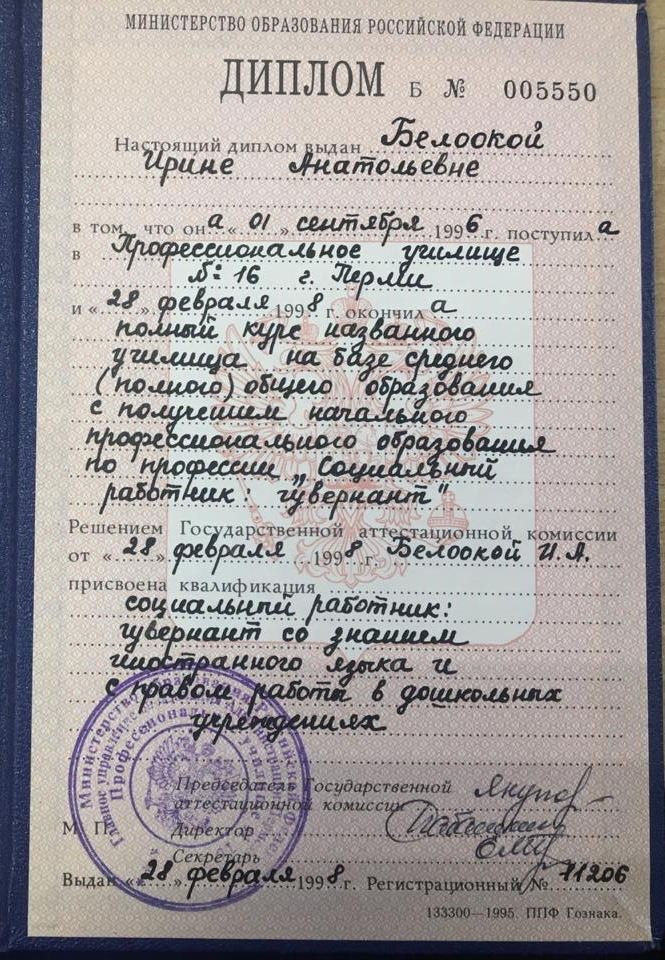 МИНИСТЕРСТВО ОБРАЗОВАНИЯ РОССИЙСКОЙ ФЕДЕРАЦИИ
ДИПЛОМ Б № 005550
Настоящий диплом выдан Белоокой
Ирине Анатольевне
в том, что он а «01» сентября 1996 г. поступил а
в Профессиональное училище
№ 16 г. Перми
и «28» февраля 1998 г. окончил а
полный курс названного
училища на базе среднего
(полного) общего образования
с получением начального
профессионального образования
по профессии „Социальный
работник: гувернант"
Решением Государственной аттестационной комиссии
от «28» февраля 1998 г. Белоокой И.А.
присвоена квалификация
социальный работник:
гувернант со знанием
иностранного языка и
с правом работы в дошкольных
учреждениях
Председатель Государственной
аттестационной комиссии
М. П. Директор
Секретарь
Выдан «28» февраля 1998 г. Регистрационный № 11206
133300—1995. ППФ Гознака.